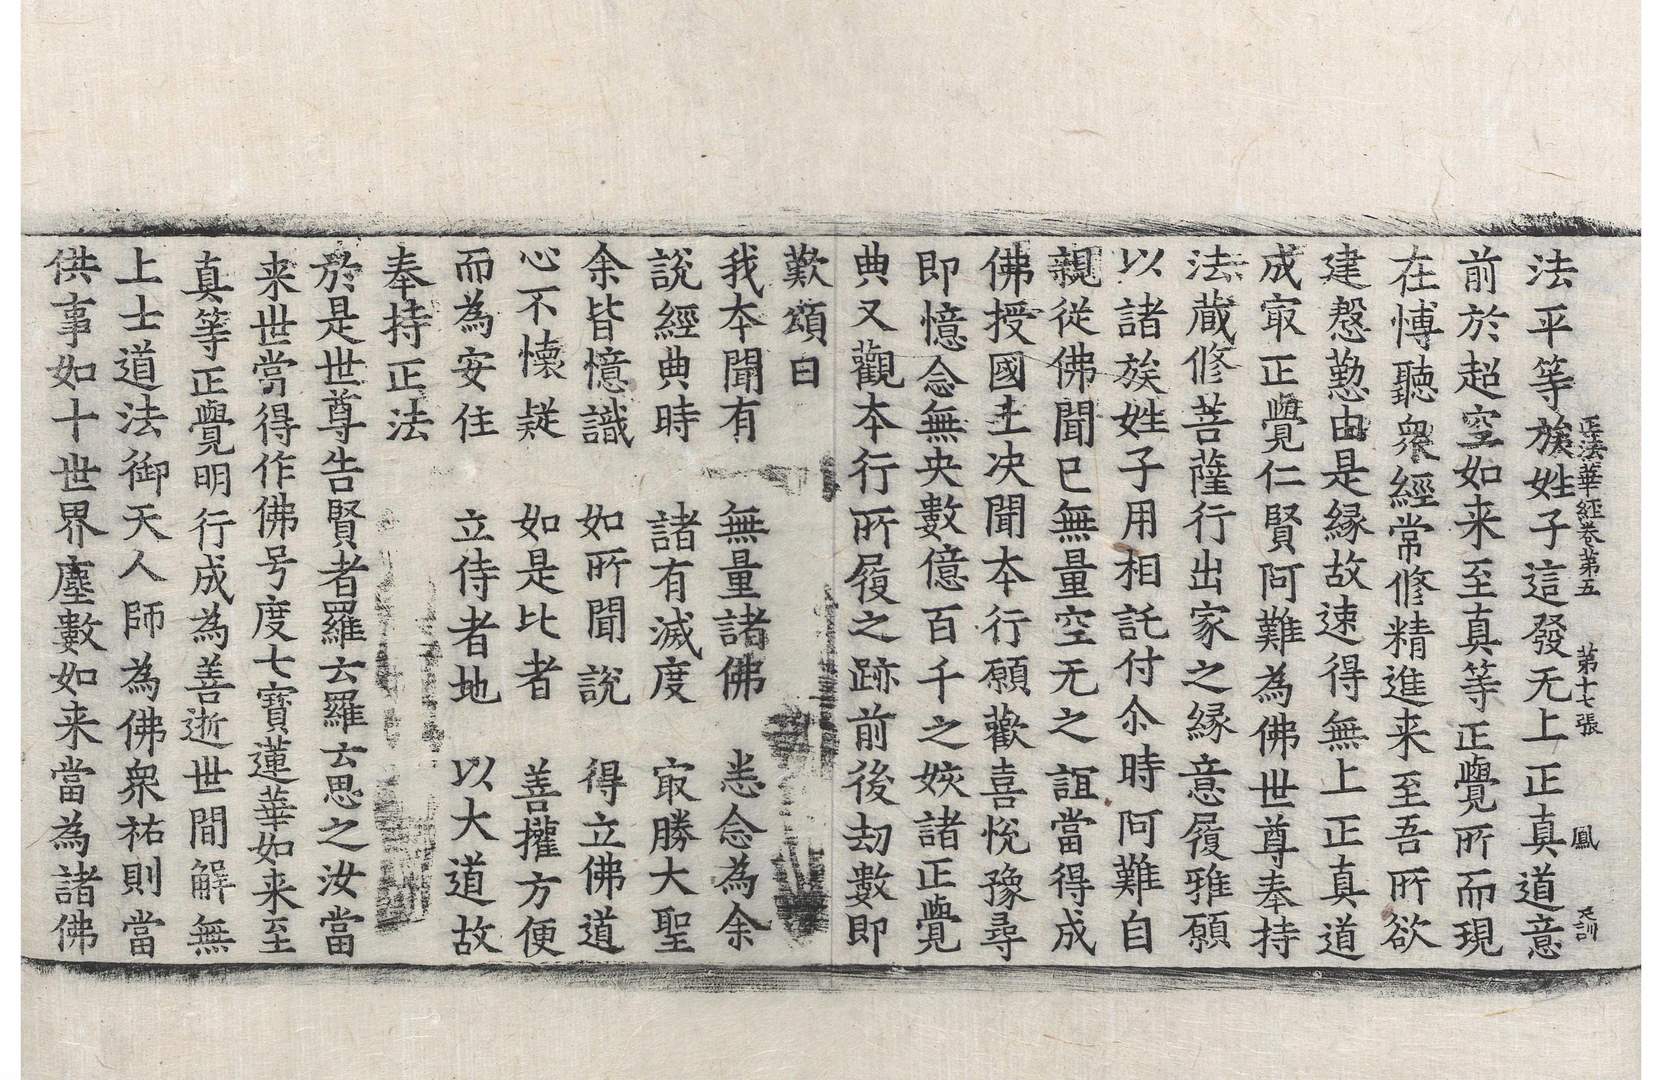 正法華經卷第五 第十七張 鳳
法平等族姓子這發无上正真道意
前於超空如来至真等正覺所而現
在愽聽衆經常修精進来至吾所欲
建慇懃由是縁故速得無上正真道
成㝡正覺仁賢阿難為佛世尊奉持
法蔵修菩薩行出家之縁意履雅願
以諸族姓子用相託付尒時阿難自
親從佛聞已無量空无之誼當得成
佛授國土决聞本行願歡喜悅豫尋
即憶念無央數億百千之姟諸正覺
典又觀本行所履之跡前後劫數即
歎頌曰
我本聞有 無量諸佛 悉念為余
說經典時 諸有滅度 㝡勝大聖
余皆憶識 如所聞說 得立佛道
心不懷疑 如是比者 善㩲方便
而為安住 立侍者地 以大道故
奉持正法
於是世尊告賢者羅云羅云思之汝當
来世當得作佛号度七寳蓮華如来至
真等正覺明行成為善逝世間解無
上士道法御天人師為佛衆祐則當
供事如十世界塵數如来當為諸佛